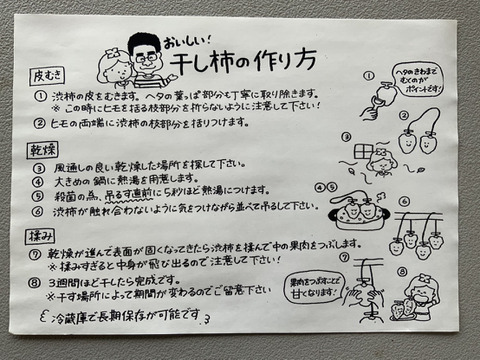 おいしい!
干し柿の作り方
皮むき
① 渋柿の皮をむきます。ヘタの葉っぱ部分も丁寧に取り除きます。
※この時にヒモを括る枝部分を折らないように注意して下さい!
② ヒモの両端に渋柿の枝部分を括りつけます。
乾燥
③ 風通しの良い乾燥した場所を探して下さい。
④ 大きめの鍋に熱湯を用意します。
⑤ 殺菌の為、吊るす直前に5秒ほど熱湯につけます。
⑥ 渋柿が触れ合わないように気をつけながら並べて吊るして下さい。
揉み
⑦ 乾燥が進んで表面が固くなってきたら渋柿を揉んで中の果肉をつぶします。
※揉みすぎると中身が飛び出るので注意して下さい!
⑧ 3週間ほど干したら完成です。
※干す場所によって期間が変わるのでご留意下さい
冷蔵庫で長期保存が可能です。
①
ヘタのきわまで
むくのが
ポイントです!
②
③
④⑤
⑥
⑦
果肉をつぶすことで
甘くなります!
⑧